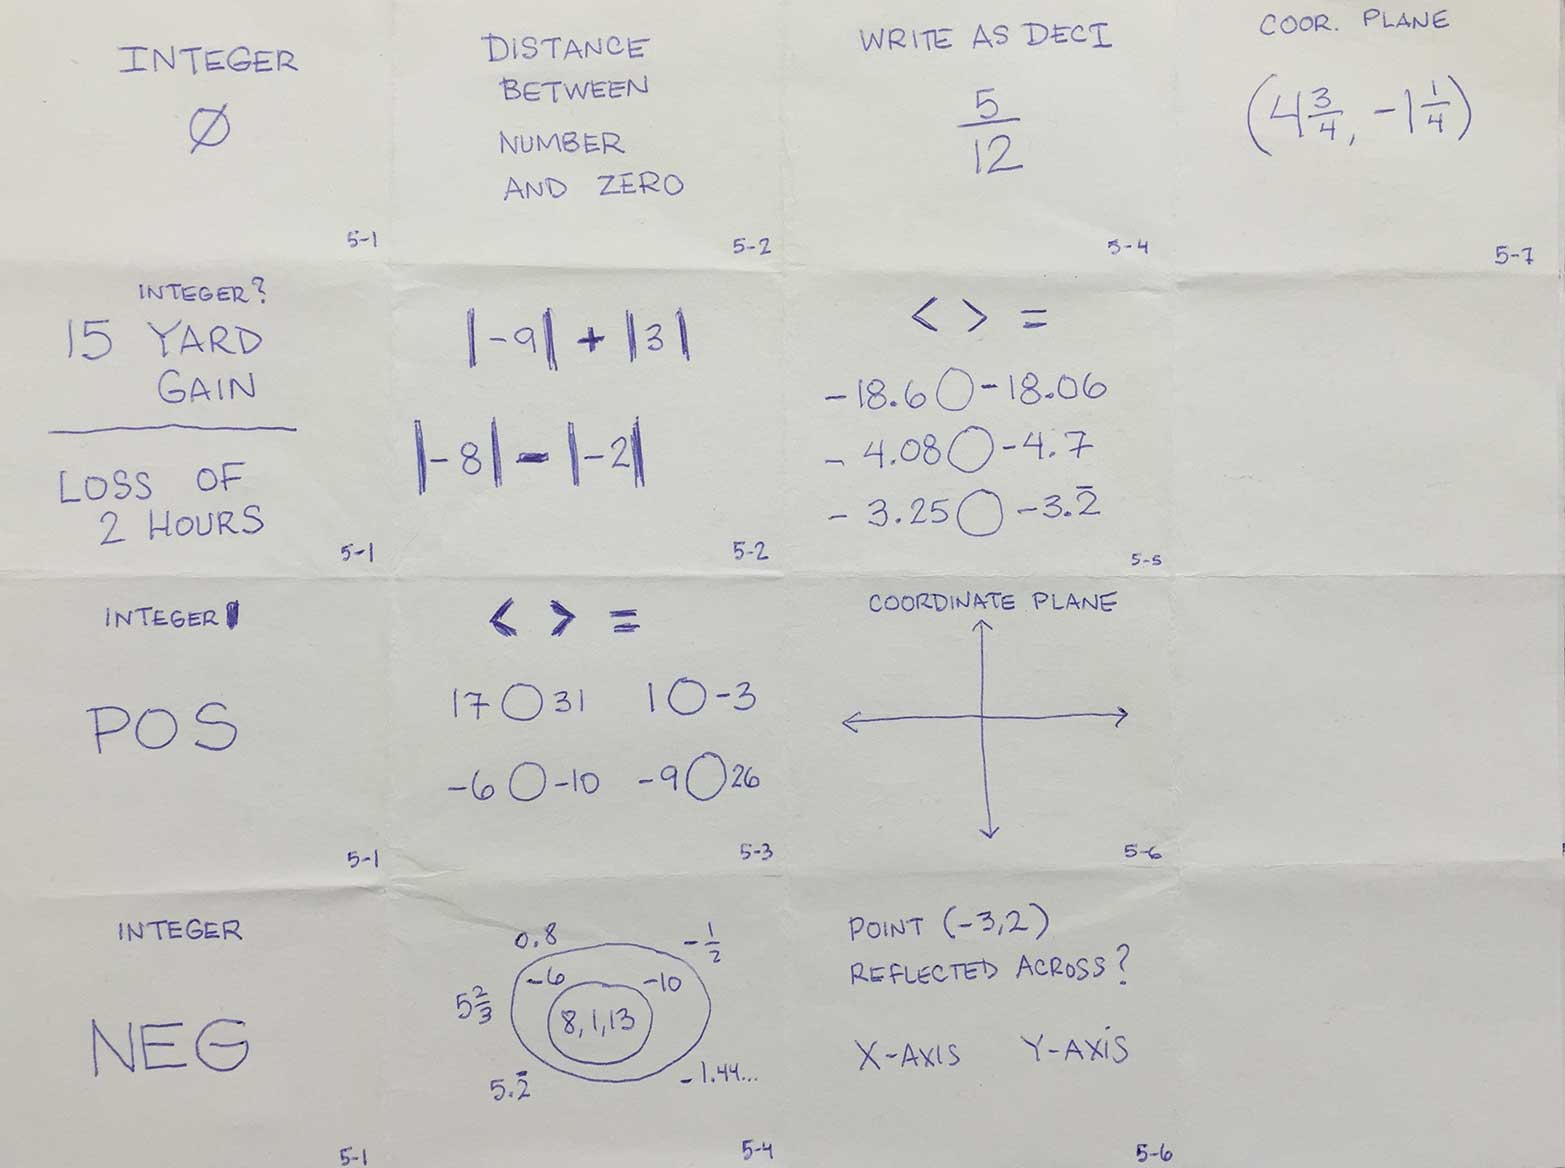 INTEGER
Ø
5-1
DISTANCE
BETWEEN
NUMBER
AND ZERO
5-2
WRITE AS DECI
5
12
5-4
COOR. PLANE
(4 3/4, -1 1/4)
5-7
INTEGER?
15 YARD
GAIN
LOSS OF
2 HOURS
5-1
|-9| + |3|
|-8| - |-2|
5-2
< > =
-18.6 ◯ -18.06
- 4.08 ◯ -4.7
- 3.25 ◯ -3.2̅
5-5
INTEGER
POS
5-1
< > =
17 ◯ 31 1 ◯ -3
-6 ◯ -10 -9 ◯ 26
5-3
COORDINATE PLANE
5-6
INTEGER
NEG
5-1
0.8 -1/2
-6 -10
5 2/3 8,1,13
5.2̅ -1.44...
5-4
POINT (-3,2)
REFLECTED ACROSS?
X-AXIS Y-AXIS
5-6